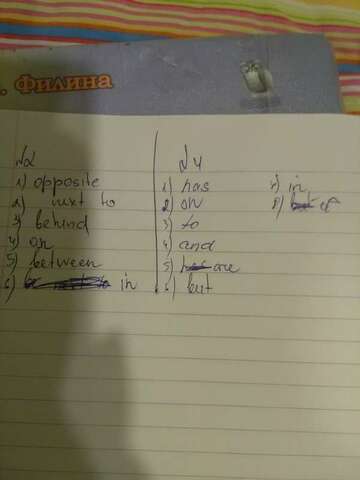 . Филина
№2
1) opposite
2) next to
3) behind
4) on
5) between
6) in
№4
1) has
2) on
3) to
4) and
5) are
6) but
7) in
8) of